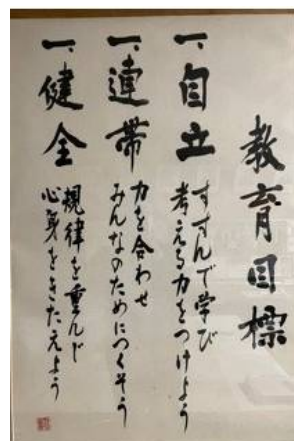 教育目標
一、自立
すすんで学び
考える力をつけよう
一、連帯
力を合わせ
みんなのためにつくそう
一、健全
規律を重んじ
心身をきたえよう